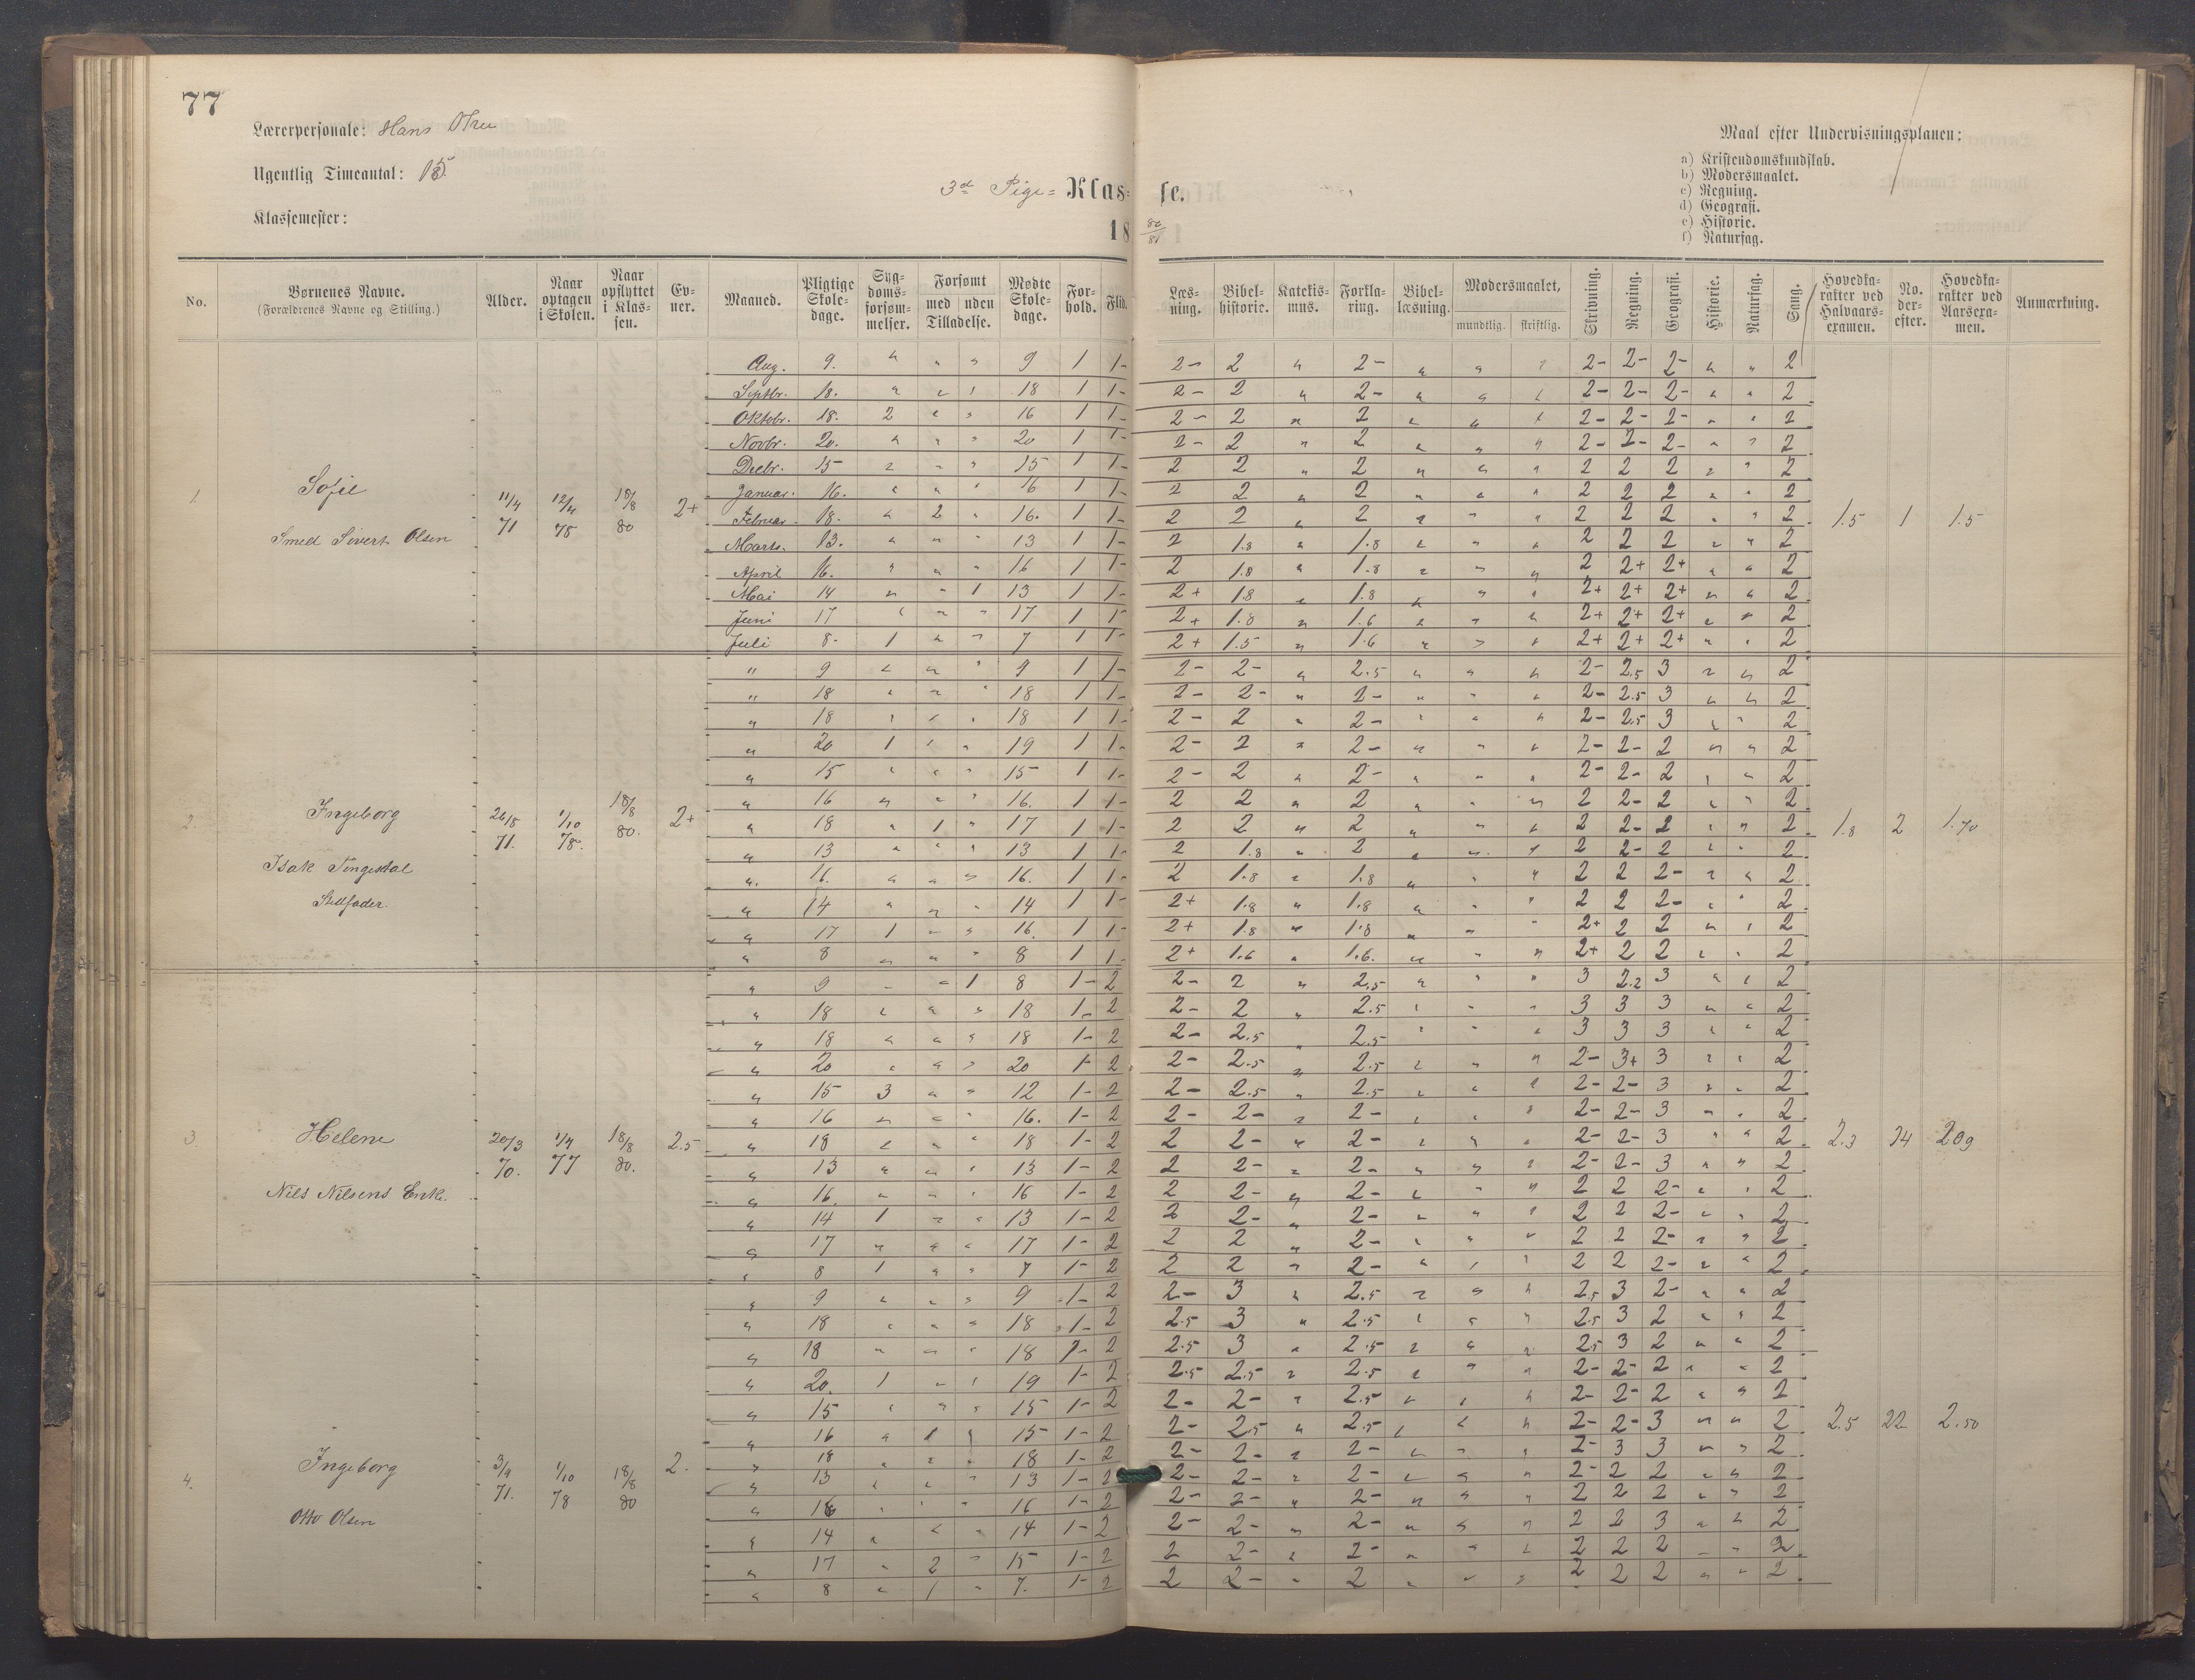 77
Lærerpersonale: Hans
Ugentlig Timeantal: 18.
Klassemester:
3die Pige= Klas=
18
se.
80/81
Maal efter Undervisningsplanen:
a) Kristendomskundskab.
b) Modersmaalet.
c) Regning.
d) Geografi.
e) Historie.
f) Naturfag.
No. Børnenes Navne. (Forældrenes Navne og Stilling.) Alder. Naar optagen i Skolen. Naar opflyttet i Klassen. Evner. Maaned. Pligtige Skoledage. Sygdomsforsømmelser. Forsømt med uden Tilladelse. Mødte Skoledage. Forhold. Flid.
Læsning. Bibelhistorie. Katekismus. Forklaring. Bibellæsning. Modersmaalet, mundtlig. skriftlig. Skrivning. Regning. Geografi. Historie. Naturfag. Sang. Hovedkarakter ved Halvaarsexamen. No. derefter. Hovedkarakter ved Aarsexamen. Anmærkning.
1. Sofie
Smed Sivert Olsen
11/4 71 12/4 78 18/8 80 2+
Aug. 9. " " " 9 1 1- 2- 2 " 2- " " " 2- 2- 2- " " 2
Septbr. 18. " " " 18 1 1- 2- 2 " 2- " " " 2- 2- 2- " " 2
Oktobr. 18. 2 " " 16 1 1- 2- 2 " 2 " " " 2- 2- 2- " " 2
Novbr. 20. " " " 20 1 1- 2- 2 " 2 " " " 2- 2- 2- " " 2
Decbr. 15 " " " 15 1 1- 2 2 " 2 " " " 2 2 2 " " 2
Januar. 16. " " " 16 1 1- 2 2 " 2 " " " 2 2 2 " " 2
Februar. 18. " 2 " 16. 1 1- 2 2 " 2 " " " 2 2 2 " " 2 1.5 1 1.5
Marts. 13. " " " 13 1 1- 2 1.8 " 1.8 " " " 2 2 2 " " 2
April 16. " " " 16 1 1- 2 1.8 " 1.8 " " " 2 2+ 2+ " " 2
Mai 14 " " 1 13 1 1- 2+ 1.8 " 1.8 " " " 2+ 2+ 2+ " " 2
Juni 17 " " " 17 1 1- 2+ 1.8 " 1.6 " " " 2+ 2+ 2+ " " 2
Juli 8. 1 " " 7 1 1- 2+ 1.5 " 1.6 " " " 2+ 2+ 2+ " " 2
2. Ingeborg
Isak Tingestal
Stedfader.
26/8 71. 1/10 78. 18/8 80. 2+
" 9 " " " 9 1 1- 2- 2- " 2.5 " " " 2- 2.5 3 " " 2
" 18 " " " 18 1 1- 2- 2- " 2- " " " 2- 2.5 3 " " 2
" 18 " " " 18 1 1- 2- 2 " 2- " " " 2- 2.5 3 " " 2
" 20 1 " " 19 1 1- 2- 2 " 2- " " " 2- 2- 2 " " 2
" 15 " " " 15 1 1- 2- 2 " 2- " " " 2- 2- 2 " " 2
" 16 " " " 16. 1 1- 2 2 " 2 " " " 2 2- 2 " " 2
" 18 " 1 " 17 1 1- 2 2 " 2 " " " 2 2- 2 " " 2 1.8 2 1.70
" 13 " " " 13 1 1- 2 1.8 " 2 " " " 2 2- 2 " " 2
" 16. " " " 16. 1 1- 2 1.8 " 1.8 " " " 2 2 2- " " 2
" 14 " " " 14 1 1- 2+ 1.8 " 1.8 " " " 2 2 2- " " 2
" 17 1 " " 16. 1 1- 2+ 1.8 " 1.8 " " " 2+ 2 2 " " 2
" 8 " " " 8 1 1- 2+ 1.6 " 1.6. " " " 2+ 2 2 " " 2
3. Helene
Nils Nilsens Enke.
20/3 70. 1/4 77 18/8 80. 2.5
" 9 " " 1 8 1- 2 2- 2 " 2.5 " " " 3 2.2 3 " " 2
" 18 " " " 18 1- 2 2- 2 " 2.5 " " " 3 3 3 " " 2
" 18 " " " 18 1- 2 2- 2.5 " 2.5 " " " 3 3 3 " " 2
" 20 " " " 20 1- 2 2- 2.5 " 2.5 " " " 2- 3+ 3 " " 2
" 15 3 " " 12 1- 2 2- 2.5 " 2.5 " " " 2- 2- 3 " " 2
" 16 " " " 16. 1- 2 2- 2- " 2- " " " 2- 2- 3 " " 2
" 18 " " " 18 1- 2 2 2- " 2- " " " 2- 2- 3 " " 2 2.3 14 2.09
" 13 " " " 13 1- 2 2 2- " 2- " " " 2- 2- 3 " " 2
" 16. " " " 16 1- 2 2 2- " 2- " " " 2 2 2- " " 2
" 14 1 " " 13 1- 2 2 2- " 2- " " " 2 2 2- " " 2
" 17 " " " 17 1- 2 2 2 " 2- " " " 2 2 2- " " 2
" 8 1 " " 7 1- 2 2 2 " 2- " " " 2 2 2- " " 2
4. Ingeborg
Otto Olsen
3/9 71. 1/10 78 18/8 80 2.
" 9 " " " 9 1- 2 2- 3 " 2.5 " " " 2.5 3 2- " " 2
" 18 " " " 18 1- 2 2.5 3 " 2.5 " " " 2.5 3 2 " " 2
" 18 " " " 18 1- 2 2.5 3 " 2.5 " " " 2.5 3 2 " " 2
" 20. 1 " " 19 1- 2 2.5 2.5 " 2.5 " " " 2- 2- 2 " " 2
" 15 " " " 15 1- 2 2- 2- " 2.5 " " " 2- 2- 2 " " 2
" 16 " 1 " 15 1- 2 2- 2.5 " 2.5 " " " 2- 2- 3 " " 2 2.5 22 2.50
" 18 " " " 18 1- 2 2- 2- " 2- " " " 2- 3 3 " " 2
" 13 " " " 13 1- 2 2- 2- " 2- " " " 2- 2 2 " " 2
" 16 " " " 16 1- 2 2- 2- " 2- " " " 2 2 2 " " 2
" 14 " " " 14 1- 2 2- 2- " 2- " " " 2 2 3 " " 2
" 17 " 2 " 15 1- 2 2 2- " 2- " " " 2 2 2 " " 2
" 8 " 1 " 7. 1- 2 2 2- " 2 " " " 2 2 2 " " 2